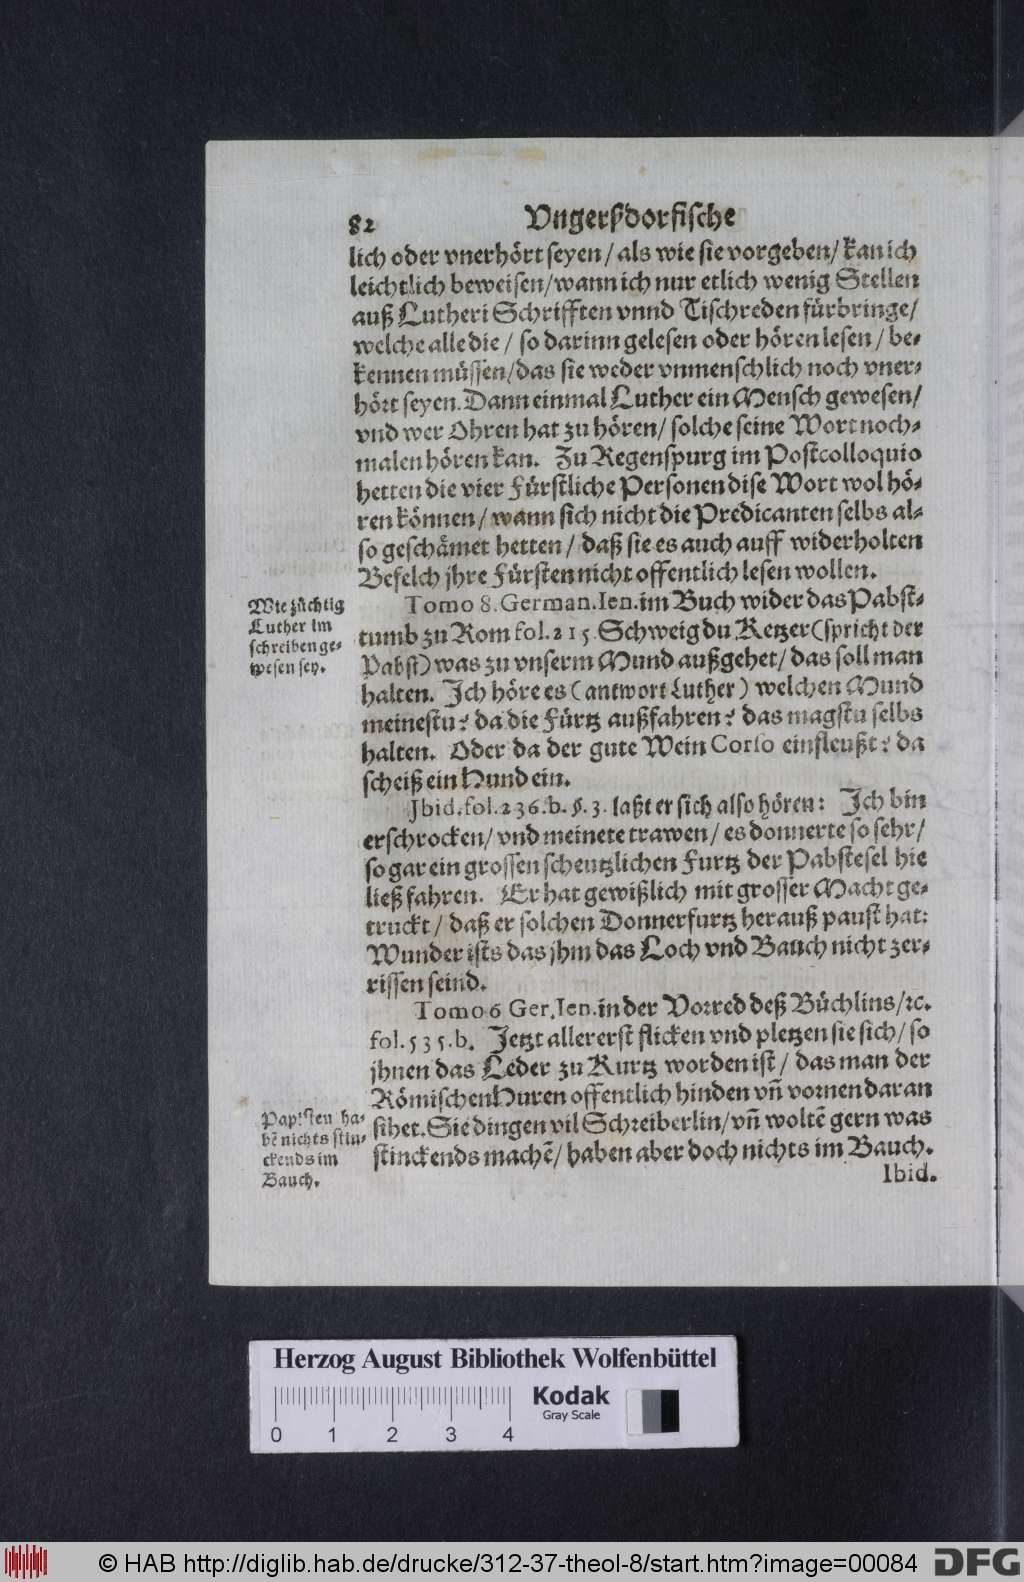 82 Vngerßdorfische
lich oder vnerhört seyen / als wie sie vorgeben / kan ich
leichtlich beweisen / wann ich nur etlich wenig Stellen
auß Lutheri Schrifften vnnd Tischreden fürbringe /
welche alle die / so darinn gelesen oder hören lesen / be-
kennen müssen / das sie weder vnmenschlich noch vner-
hört seyen. Dann einmal Luther ein Mensch gewesen /
vnd wer Ohren hat zu hören / solche seine Wort noch-
malen hören kan. Zu Regenspurg im Postcolloquio
hetten die vier Fürstliche Personen dise Wort wol hö-
ren können / wann sich nicht die Predicanten selbs al-
so geschämet hetten / daß sie es auch auff widerholten
Befelch jhre Fürsten nicht offentlich lesen wollen.
Wie züchtig
Luther im
schreiben ge-
wesen sey.
Tomo 8. German. Ien. im Buch wider das Pabst-
tumb zu Rom fol. 215. Schweig du Ketzer (spricht der
Pabst) was zu vnserm Mund außgehet / das soll man
halten. Ich höre es (antwort Luther) welchen Mund
meinestu? da die Fürtz außfahren? das magstu selbs
halten. Oder da der gute Wein Corso einfleußt? da
scheiß ein Hund ein.
Ibid. fol. 236. b. §. 3. laßt er sich also hören: Ich bin
erschrocken / vnd meinete trawen / es donnerte so sehr /
so gar ein grossen scheutzlichen Furtz der Pabstesel hie
ließ fahren. Er hat gewißlich mit grosser Macht ge-
truckt / daß er solchen Donnerfurtz herauß paust hat:
Wunder ists das jhm das Loch vnd Bauch nicht zer-
rissen seind.
Tomo 6 Ger. Ien. in der Vorred deß Büchlins / ꝛc.
fol. 535. b. Jetzt allererst flicken vnd pletzen sie sich / so
jhnen das Leder zu Kurtz worden ist / das man der
Römischen Huren offentlich hinden vñ vornen daran
sihet. Sie dingen vil Schreiberlin / vñ woltē gern was
stinckends machē / haben aber doch nichts im Bauch.
Papisten ha-
bē nichts stin-
ckends im
Bauch.
Ibid.
Herzog August Bibliothek Wolfenbüttel
Kodak
Gray Scale
0 1 2 3 4
© HAB http://diglib.hab.de/drucke/312-37-theol-8/start.htm?image=00084
DFG